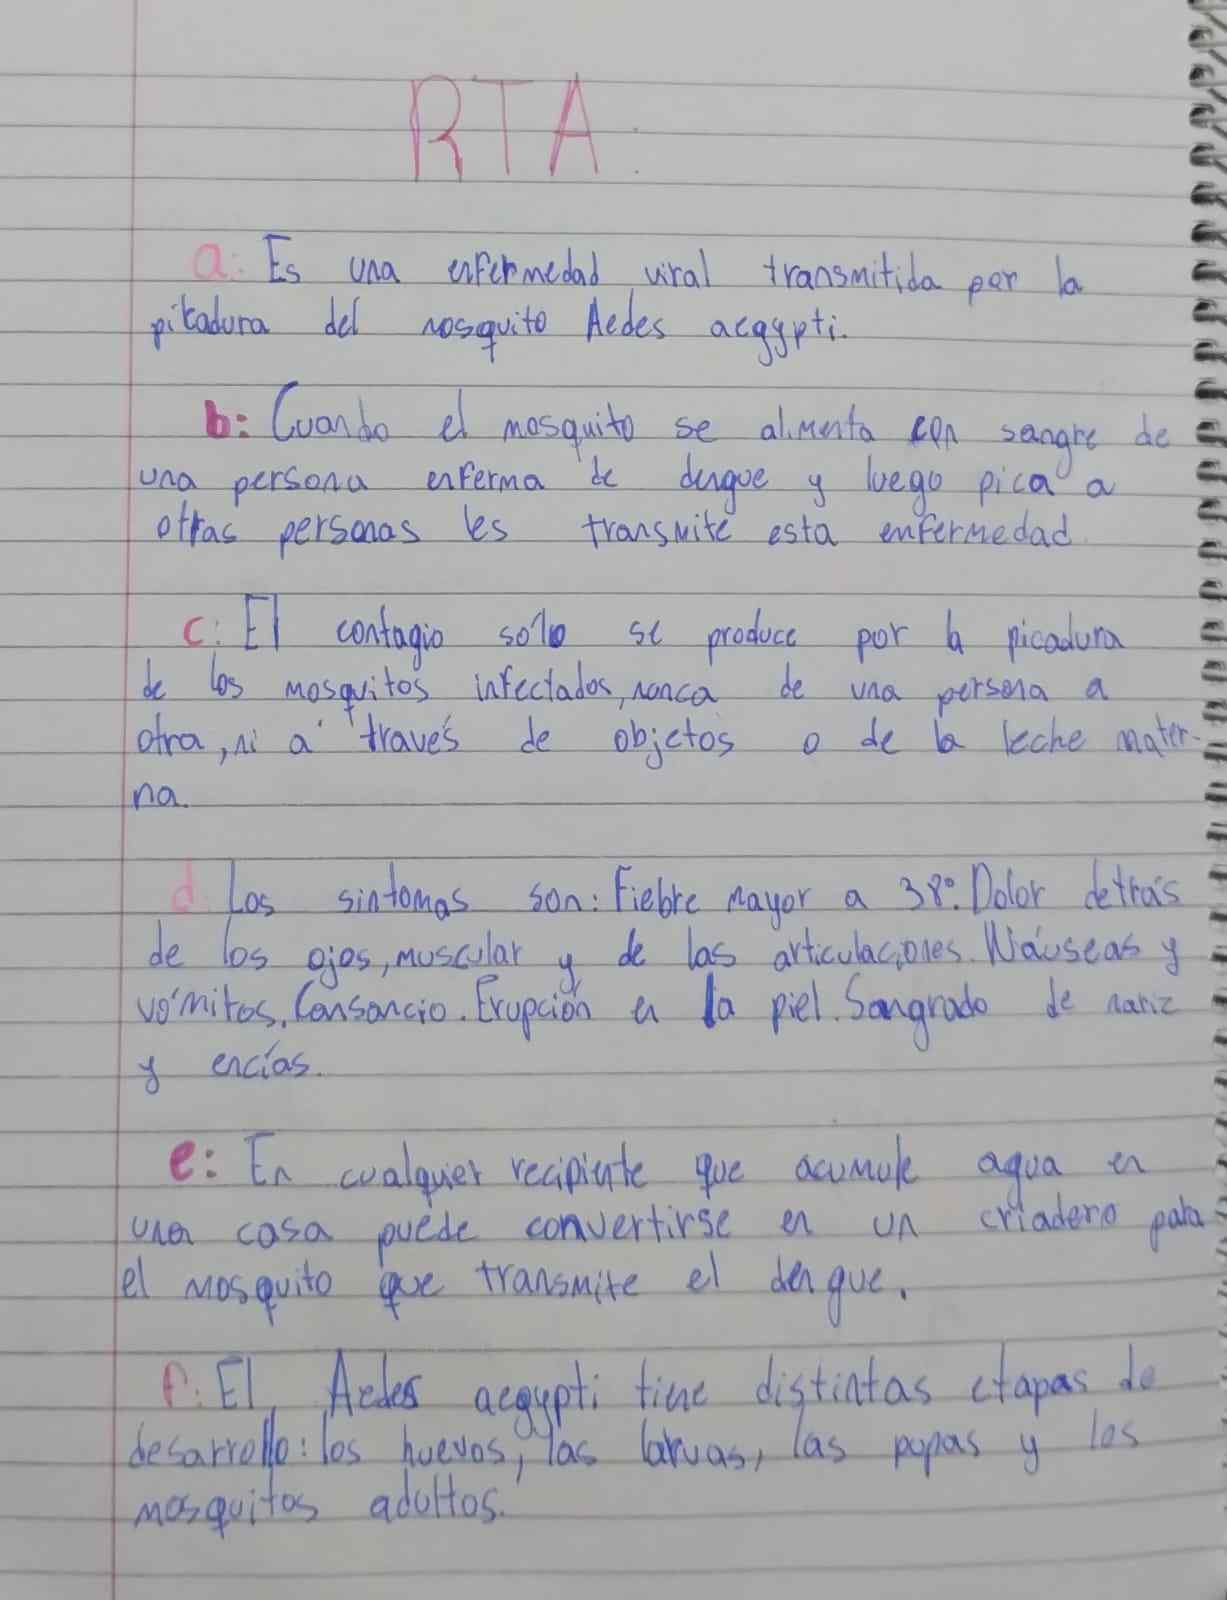 RTA:
a: Es una enfermedad viral transmitida por la
picadura del mosquito Aedes aegypti.
b: Cuando el mosquito se alimenta con sangre de
una persona enferma de dengue y luego pica a
otras personas les transmite esta enfermedad
c: El contagio sólo se produce por la picadura
de los mosquitos infectados, nunca de una persona a
otra, ni a través de objetos o de la leche mater-
na.
d. Los sintomas son: Fiebre mayor a 38°. Dolor detrás
de los ojos, muscular y de las articulaciones. Náuseas y
vómitos. Cansancio. Erupción en la piel. Sangrado de nariz
y encías.
e: En cualquier recipiente que acumule agua en
una casa puede convertirse en un criadero para
el mosquito que transmite el dengue.
f: El Aedes aegypti tiene distintas etapas de
desarrollo: los huevos, las larvas, las pupas y los
mosquitos adultos.